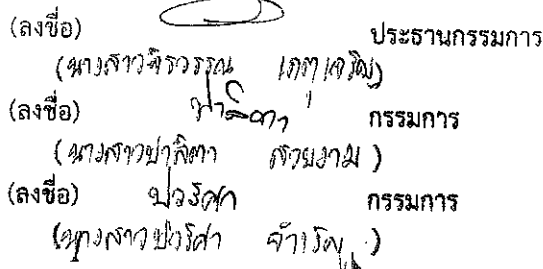 (ลงชื่อ) ประธานกรรมการ
(นางสาวจิรวรรณ เกตุเจริญ)
(ลงชื่อ) ปาลิตา กรรมการ
(นางสาวปาลิตา สายงาม)
(ลงชื่อ) ปวริศา กรรมการ
(นางสาวปวริศา จำเริญ)